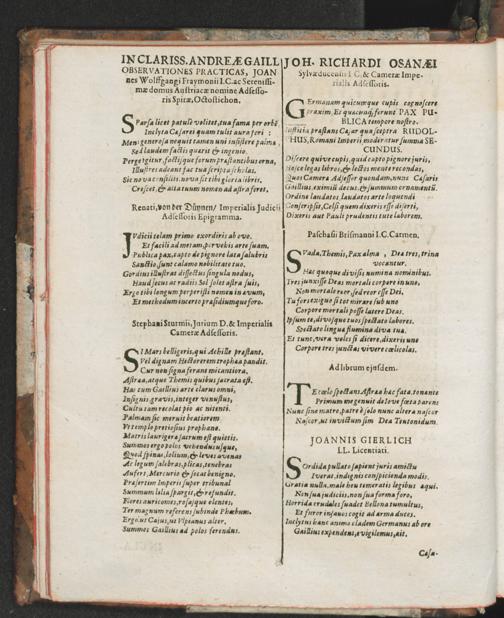 IN CLARISS. ANDREÆ GAILL
OBSERVATIONES PRACTICAS, JOAN
nes Wolffgangi Fraymonii I.C. ac Serenissi-
mæ domus Austriacæ nomine Adsesso-
ris Spiræ, Octostichon.
Sparsa licet patulè volitet, tua fama per orbē
Inclyta Cæsarei quam tulit aura fori :
Mens generosa nequit tamen uni insistere palmæ,
Sed laudem factis quærit & ingenio.
Perge igitur, factisque forum præstantibus orna,
Illustres adeant fac tua scripta scholas.
Sic nova nobilitas, nova sic tibi gloria libris.
Crescet, & altatuum nomen ad astra feret.
Renati, von der Dünnen/ Imperialis Judicii
Adsessoris Epigramma.
Judicii telam primo exordiris ab ovo.
Et facili ad metam, pervehis arte suam.
Publica pax, capto de pignore lata salubris
Sanctio, sunt calamo nobilitata tuo.
Gordius illustrat dissectus singula nodus,
Haud secus ac radiis Sol solet astra suis,
Ergo tibi longum perperisti nomen in ævum,
Et methodum incerto præsidiumque foro.
Stephani Sturmii, Jurium D. & Imperialis
Cameræ Adsessoris.
Si Mars belligeris, qui Achille præstant,
Vel dignam Hectoream trophæa pandit.
Cur non signa ferant micantiora,
Astræa, atque Themis quibus sacrata est.
Has cum Gaillius arte clarus omni,
Insignis gravis, integer venustus,
Cultu tam recolat pio ac nitenti.
Palmam sic meruit beatiorem
Ut templo pretiosius prophano.
Matris laurigera sacrum est quietis.
Summos ergo polos vehendus usque,
Quod spinas, lolium, & leves avenas
Ac legum salebras, plicas, tenebras
Aufert, Mercurio & focat benigno,
Præsertim Imperii super tribunal
Summum lilia spargit, & refundit.
Flores auricomos, rosasque olentes,
Ter magnum referens subinde Phœbum.
Ergo, ut Cajus, ut Vlpeanus alter,
Summos Gaillius ad polos ferendus.
JOH. RICHARDI OSANÆI
Sylvæducensis I.C. & Cameræ Impe-
rialis Adsessoris.
Germanam quicumque cupis cognoscere
praxim, Et quacunque ferunt PAX PU-
BLICA tempore nostro.
Justitia præstans Cæsar qua sceptra RUDOL-
PHUS, Romani Imperii moderatur summa SE-
CUNDUS.
Discere qui ve cupis, quid capto pignore juris,
Hosce legas libros, & lectos mente recondas,
Quos Camera Adsessor quondam, nunc Cæsaris
Gaillius, eximiii decus, & summum ornamentū.
Ordine laudatos laudatos arte loquendi
Conscripsit, Celsi quem dixeris esse diserti,
Dixeris aut Pauli prudentis tute laborem.
Paschasii Brismanni I.C. Carmen.
Svada, Themis, Pax alma, Dea tres, trina
vocantur.
Hac quoque divisis numina nominibus.
Tres junxisse Deas mortali corpore in uno,
Non mortale reor sed reor esse Dei.
Tu fors exiguo si tot mirare sub uno
Corpore mortali posse latere Deas.
Ipsum te, divosque tuos spectato labores.
Spectato lingua flumina diva tua.
Et tunc, vera voles si dicere, dixeris uno
Corpore tres junctas vivere cœlicolas.
Ad librum ejusdem.
Te cœlo spectans Astræa hac fata, tonante
Primum me genuit de Iove fœta parens
Nunc sine matre, patre è solo nunc altera nascor
Nascor, ut invictum sim Dea Teutonidum.
JOANNIS GIERLICH
LL. Licentiati.
Sordida pullato sapient juris amictu
Iveras, indignis conspicienda modis.
Gratia nulla, male heu temeratis legibus æqui.
Non sua judiciis, non sua forma foro,
Horrida crudeles suadet Bellona tumultus,
Et furor insanos cogit ad arma duces.
Inclytus hanc animo cladem Germanus ab ore
Gaillius expendens, evigilemus, ait.
Cæsa-